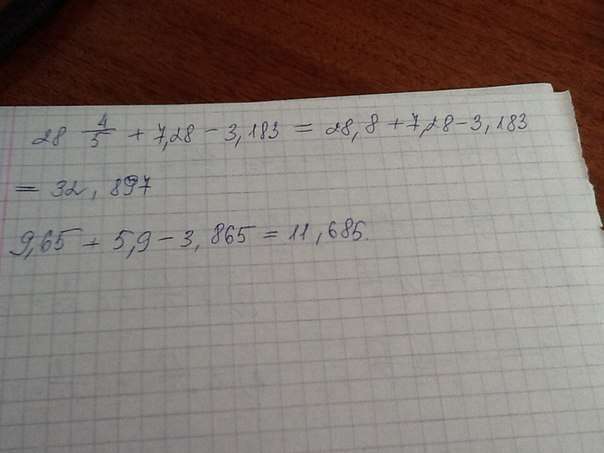 28 4/5 + 7,28 - 3,183 = 28,8 + 7,28 - 3,183
= 32,897
9,65 + 5,9 - 3,865 = 11,685.